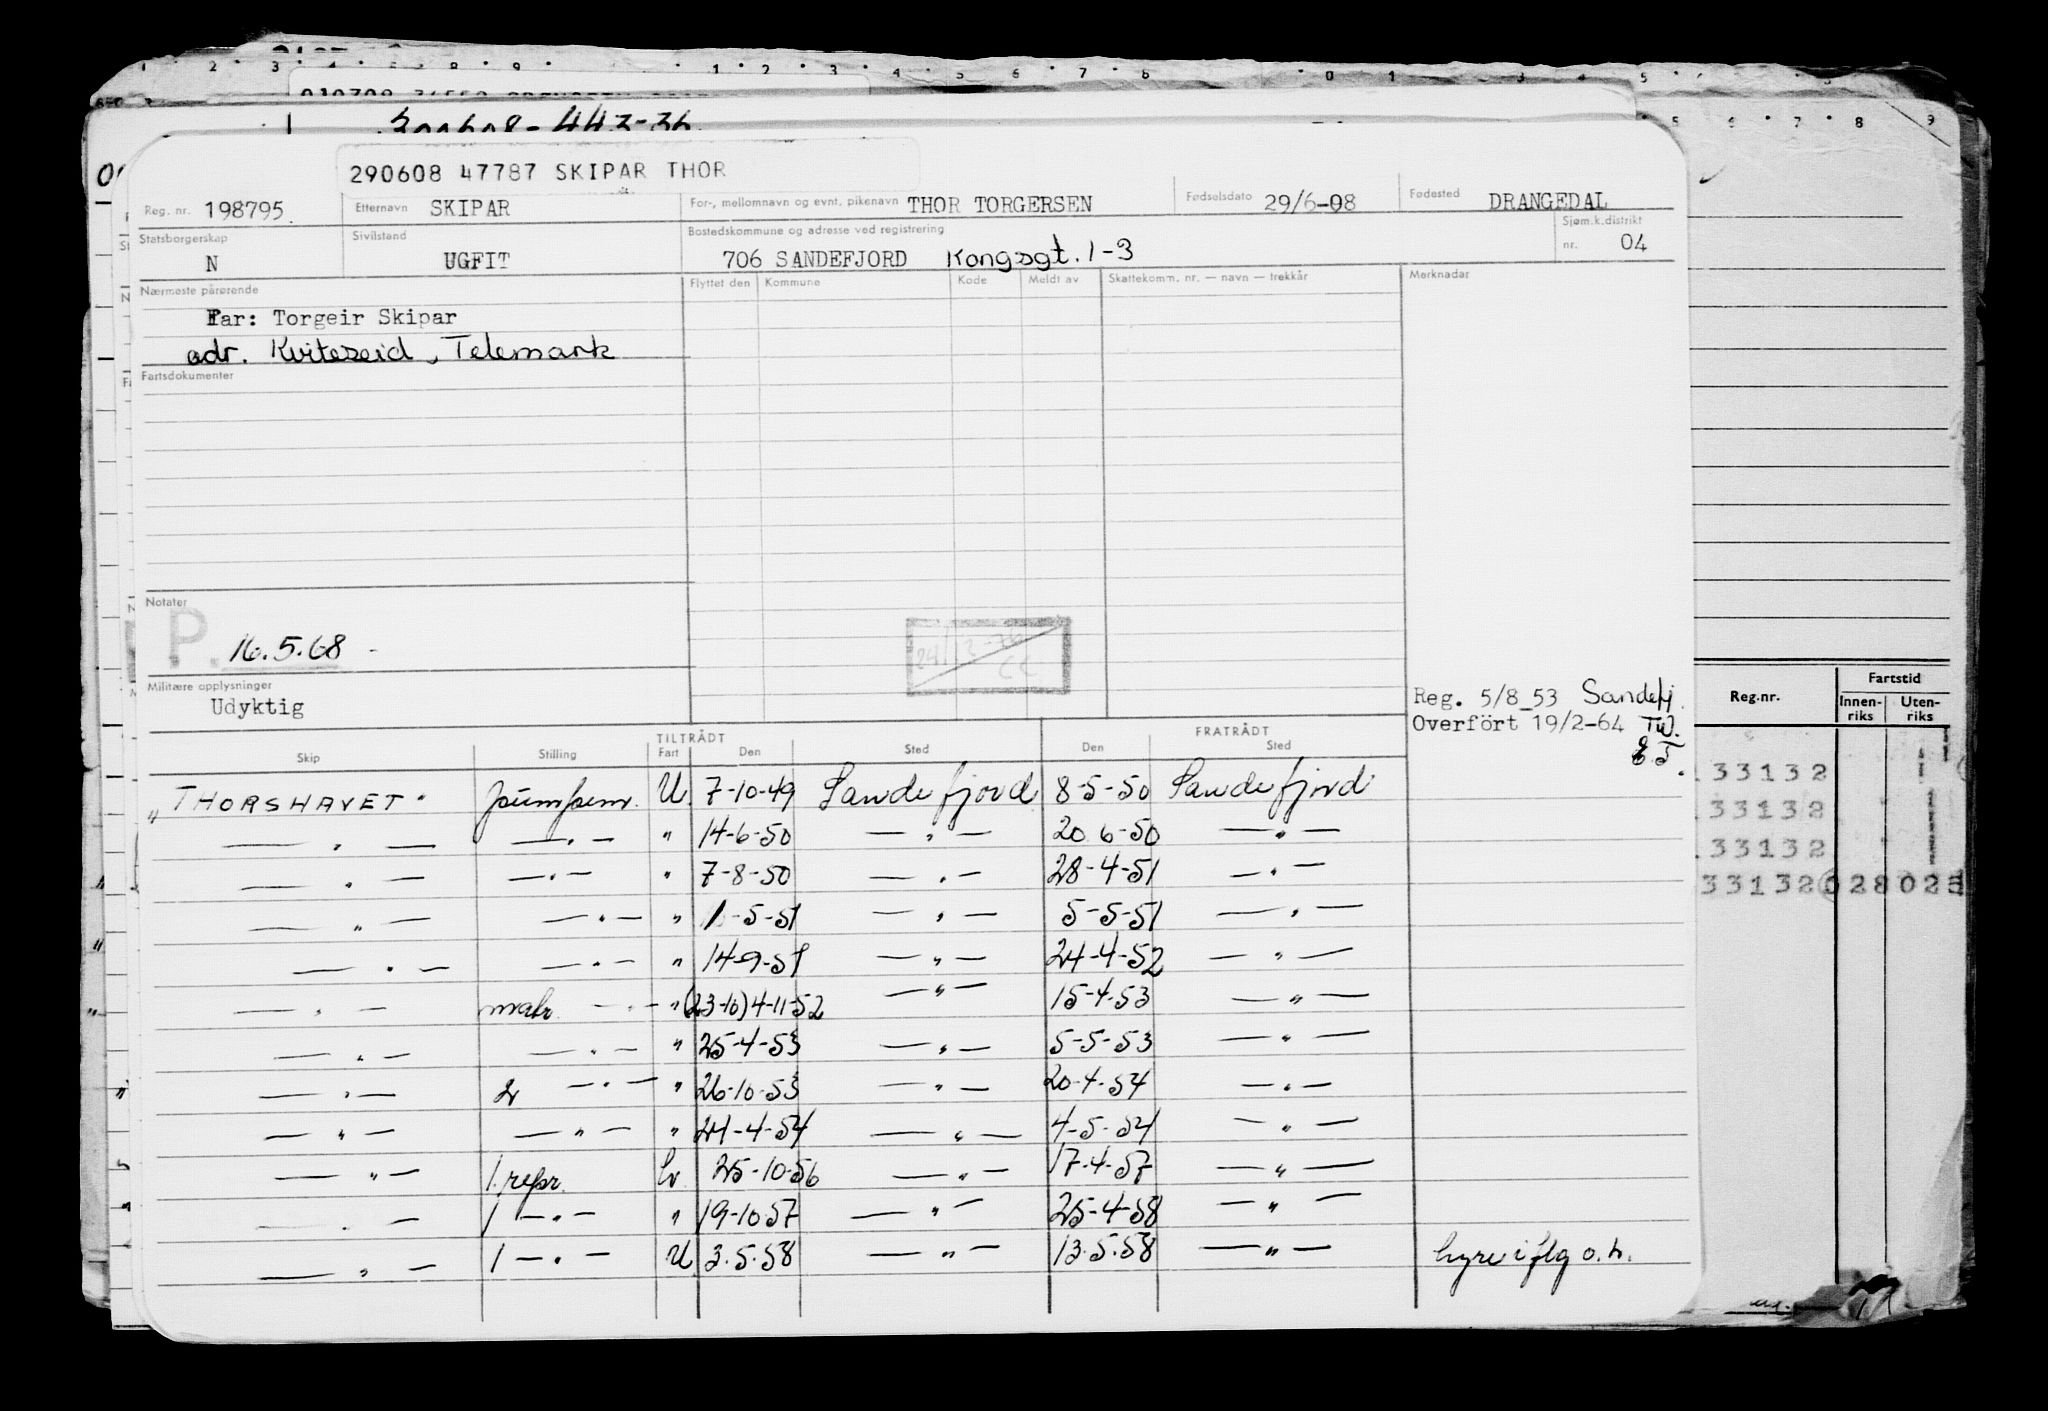 300608-443-36
290608 47787 SKIPAR THOR
Reg. nr. 198795. Etternavn SKIPAR For-, mellomnavn og evnt. pikenavn THOR TORGERSEN Fødselsdato 29/6-08 Fødested DRANGEDAL
Statsborgerskap N Sivilstand UGFIT Bostedskommune og adresse ved registrering 706 SANDEFJORD Kongsgt. 1-3 Sjøm.k.distrikt nr. 04
Nærmeste pårørende Flyttet den Kommune Kode Meldt av Skattekomm. nr. — navn — trekkår Merknader
Far: Torgeir Skipar
adr. Kviteseid, Telemark
Fartsdokumenter
Notater
P. 16.5.68
Militære opplysninger
Udyktig
Reg. 5/8_53 Sandefj.
Overført 19/2-64 TW.
Reg.nr. Fartstid
Innen-riks Uten-riks
TILTRÅDT FRATRÅDT
Skip Stilling Fart Den Sted Den Sted
"THORSHAVET" U. 7-10-49 Sandefjord 8-5-50 Sandefjord
— " — — " — " 14-6-50 — " — 20 6-50 — " —
— " — — " — " 7-8-50 — " — 28-4-51 — " —
— " — — " — " 1-5-51 — " — 5-5-51 — " —
— " — — " — " 14-9-51 — " — 24-4-52 — " —
— " — — " — " (23-10) 4-11-52 — " — 15-4-53 — " —
— " — — " — " 25-4-53 — " — 5-5-53 — " —
— " — 2 — " — " 26-10-53 — " — 20-4-54 — " —
— " — — " — " 24-4-54 — " — 4-5-54 — " —
— " — 1. repr. 25-10-56 — " — 17-4-57 — " —
— " — 1 — " — " 19-10-57 — " — 25-4-58 — " —
— " — 1 — " — U 3.5.58 — " — 13.5.58 — " — hyre i flg o.h.
33132
33132
33132
33132 028025